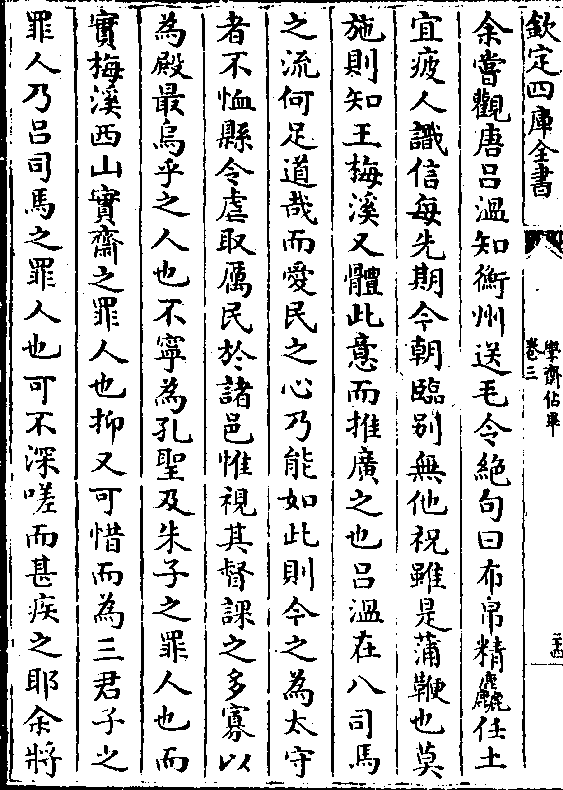 欽定四庫全書
學齋佔畢
卷三
二十四
余嘗觀唐吕溫知衡州送毛令絶句曰布帛精麤任土
宜疲人識信每先期今朝臨别無他祝雖是蒲鞭也莫
施則知王梅溪又體此意而推廣之也吕溫在八司馬
之流何足道哉而愛民之心乃能如此則今之為太守
者不恤縣令虐取厲民於諸邑惟視其督課之多寡以
為殿最烏乎之人也不寧為孔聖及朱子之罪人也而
實梅溪西山實齋之罪人也抑又可惜而為三君子之
罪人乃吕司馬之罪人也可不深嗟而甚疾之耶余將